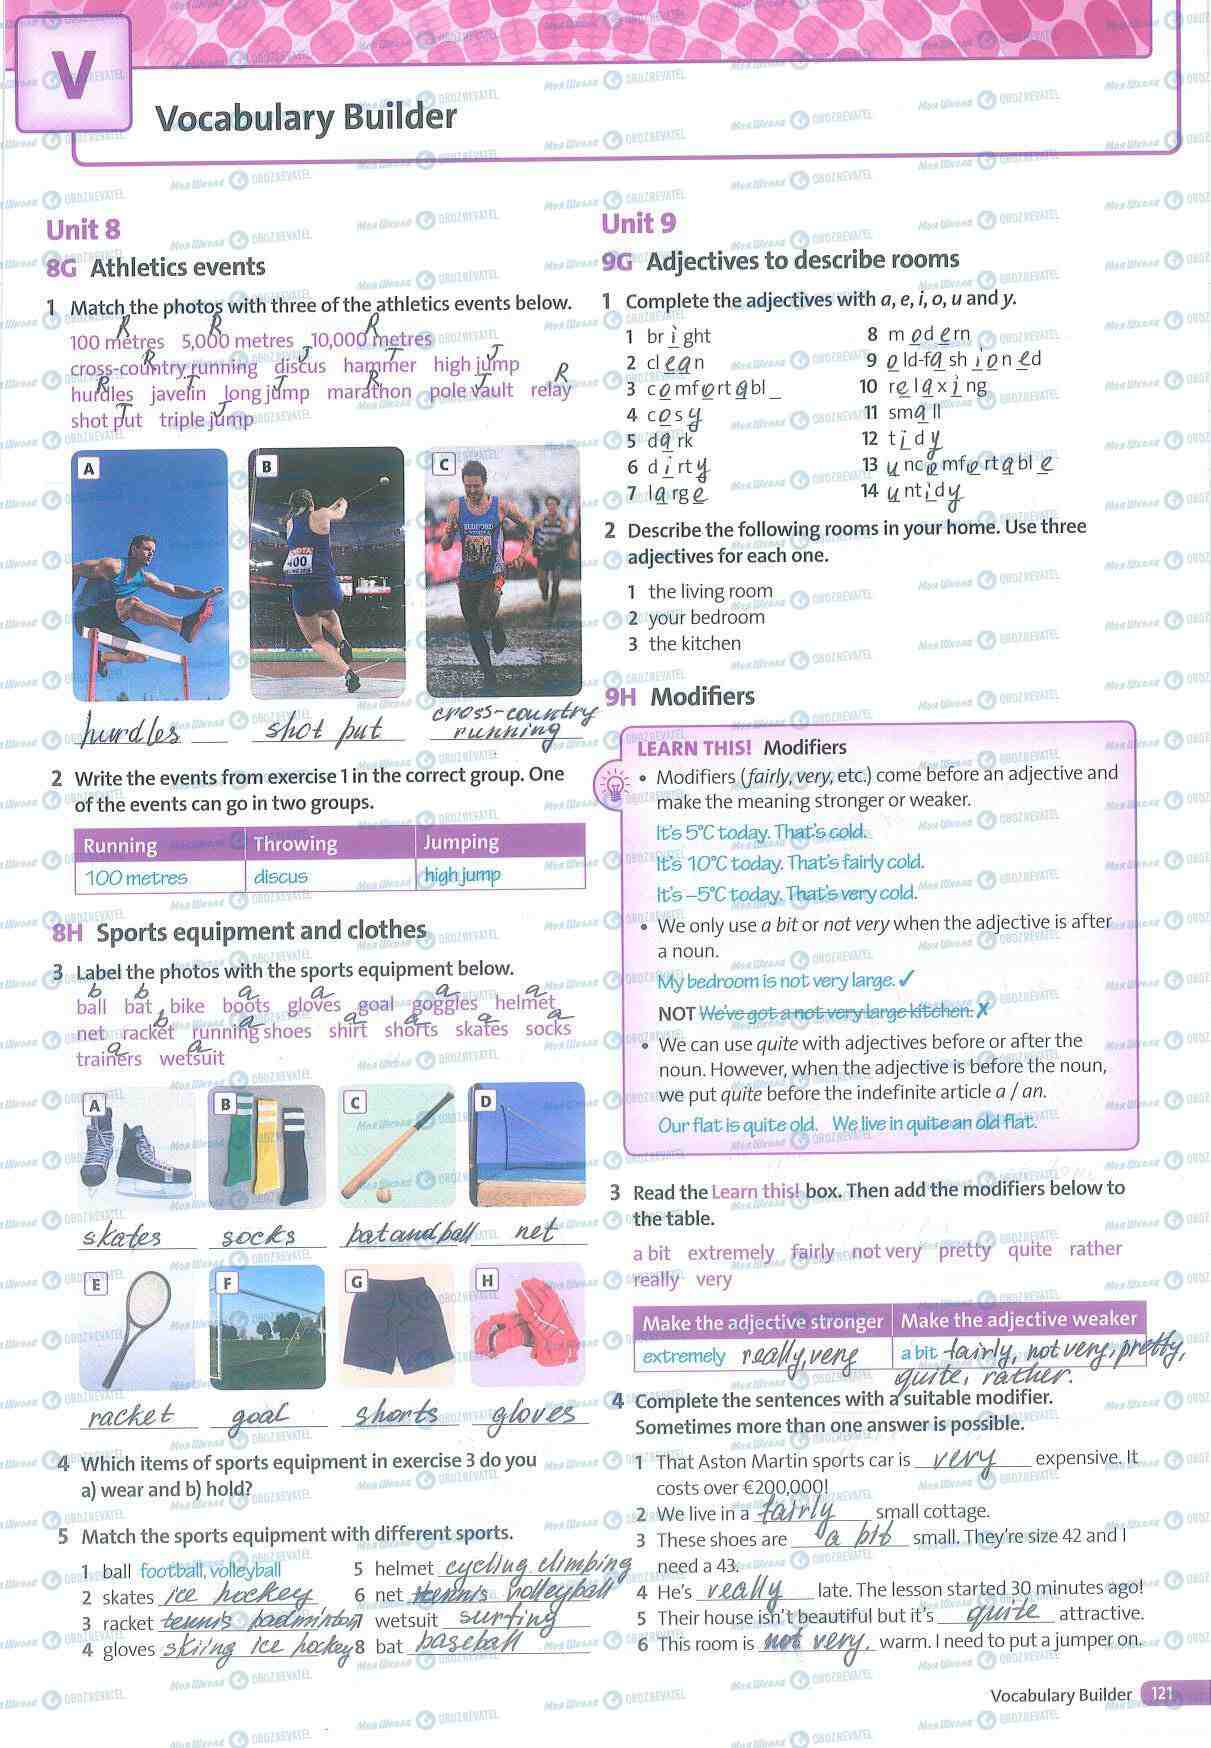 V
Vocabulary Builder
Unit 8
8G Athletics events
1 Match the photos with three of the athletics events below.
R R R
100 metres 5,000 metres 10,000 metres
R T T J
cross-country running discus hammer high jump
R T J R J R
hurdles javelin long jump marathon pole vault relay
T J
shot put triple jump
A B C
hurdles shot put cross-country
running
2 Write the events from exercise 1 in the correct group. One
of the events can go in two groups.
Running Throwing Jumping
100 metres discus high jump
8H Sports equipment and clothes
3 Label the photos with the sports equipment below.
b b a a a a
ball bat bike boots gloves goal goggles helmet
b a a a a a
net racket running shoes shirt shorts skates socks
a a
trainers wetsuit
A B C D
skates socks bat and ball net
E F G H
racket goal shorts gloves
4 Which items of sports equipment in exercise 3 do you
a) wear and b) hold?
5 Match the sports equipment with different sports.
1 ball football, volleyball
2 skates ice hockey
3 racket tennis badminton
4 gloves skiing ice hockey
5 helmet cycling climbing
6 net tennis volleyball
7 wetsuit surfing
8 bat baseball
Unit 9
9G Adjectives to describe rooms
1 Complete the adjectives with a, e, i, o, u and y.
1 br i ght
2 cl e a n
3 c o mf o rt a bl _
4 c o s y
5 d a rk
6 d i rt y
7 l a rg e
8 m o d e rn
9 o ld-f a sh i o n e d
10 r e l a x i ng
11 sm a ll
12 t i d y
13 u nc o mf o rt a bl e
14 u nt i d y
2 Describe the following rooms in your home. Use three
adjectives for each one.
1 the living room
2 your bedroom
3 the kitchen
9H Modifiers
LEARN THIS! Modifiers
• Modifiers (fairly, very, etc.) come before an adjective and
make the meaning stronger or weaker.
It's 5°C today. That's cold.
It's 10°C today. That's fairly cold.
It's –5°C today. That's very cold.
• We only use a bit or not very when the adjective is after
a noun.
My bedroom is not very large. ✓
NOT We've got a not very large kitchen. ✗
• We can use quite with adjectives before or after the
noun. However, when the adjective is before the noun,
we put quite before the indefinite article a / an.
Our flat is quite old. We live in quite an old flat.
3 Read the Learn this! box. Then add the modifiers below to
the table.
a bit extremely fairly not very pretty quite rather
really very
Make the adjective stronger Make the adjective weaker
extremely really, very a bit fairly, not very, pretty,
quite, rather.
4 Complete the sentences with a suitable modifier.
Sometimes more than one answer is possible.
1 That Aston Martin sports car is very expensive. It
costs over €200,000!
2 We live in a fairly small cottage.
3 These shoes are a bit small. They're size 42 and I
need a 43.
4 He's really late. The lesson started 30 minutes ago!
5 Their house isn't beautiful but it's quite attractive.
6 This room is not very. warm. I need to put a jumper on.
Vocabulary Builder 121